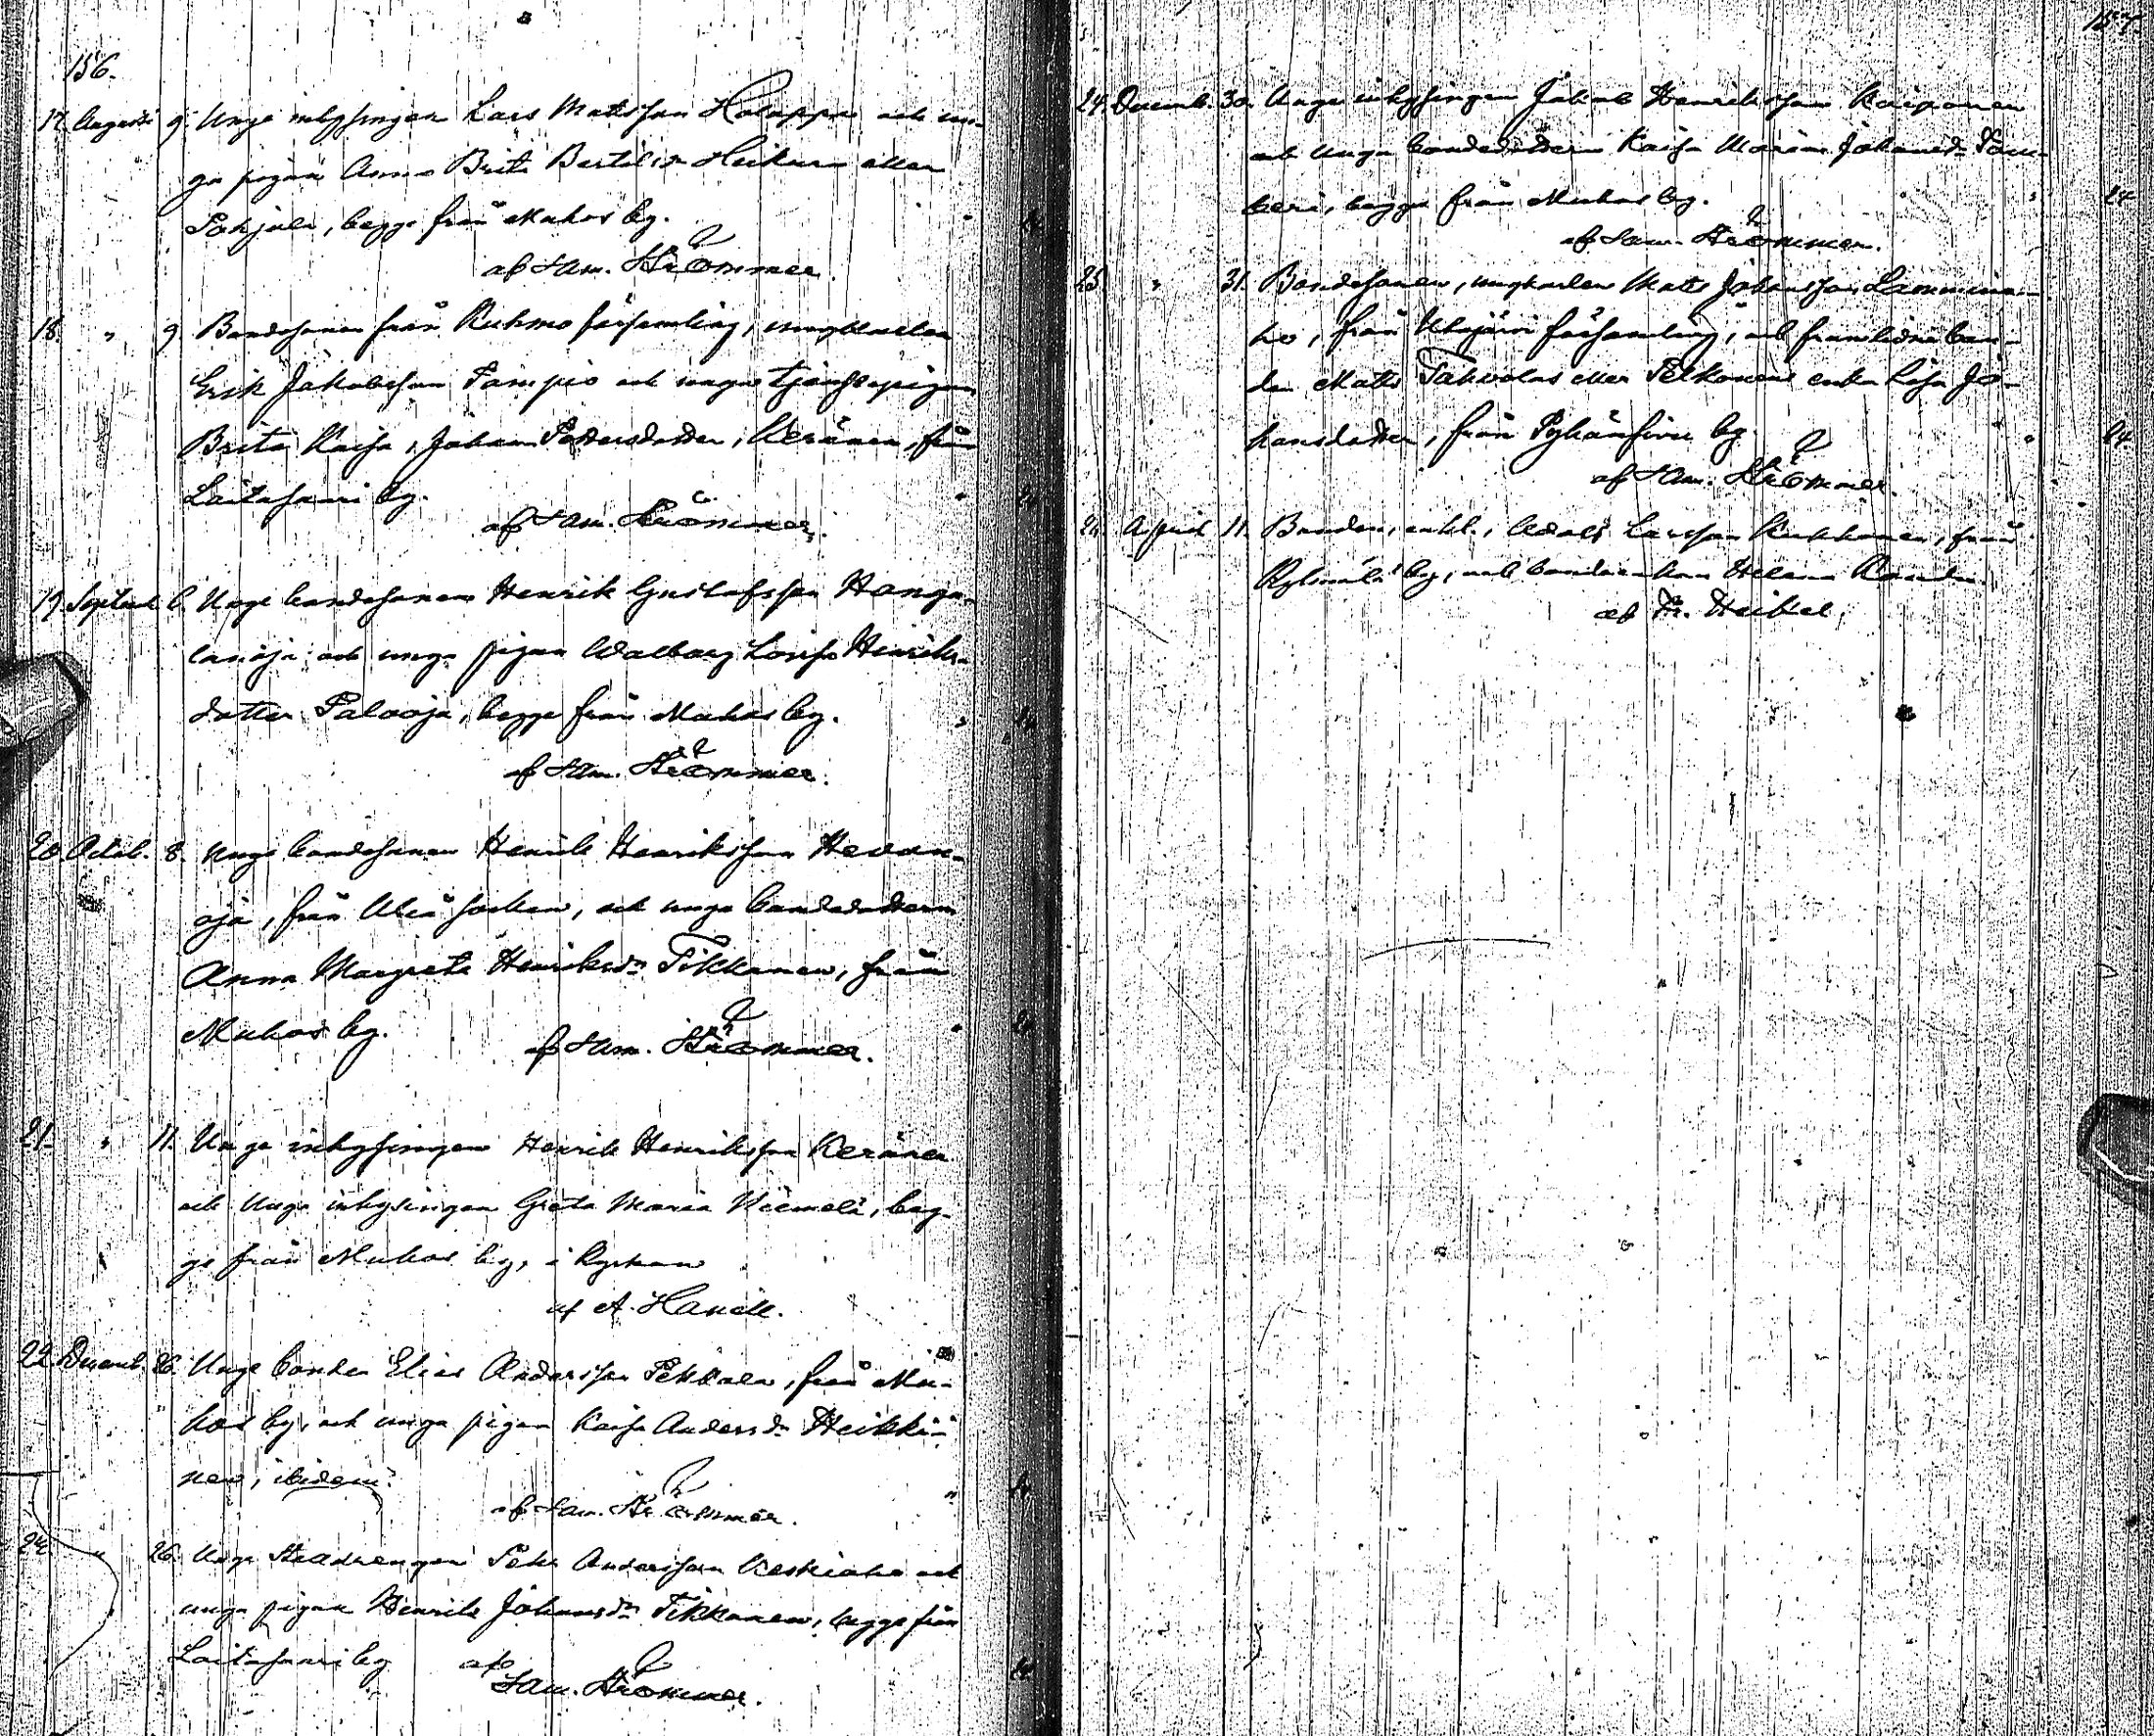 156.
17. Augusti 9. Unge inhysingen Lars Mattsson Holappa och un-
ga pigan Anna Brita Bertilsdr Heikura eller
Pohjola, begge från Muhos by. " 24
af Sam. Strömmer.
18. " 9 Bondesonen från Kuhmo församling, ungkarlen
Erik Jakobsson Pampio och unga tjenstepigan
Brita Kaisa, Johan Pettersdotter, Keränen, från
Laitasaari by. " 24
af Sam. Strömmer.
19. Septemb. 6. Unge bondesonen Henrik Gustafsson Honga-
lanoja och unga pigan Walborg Lovisa Henriks-
dotter Palooja, begge från Muhos by. " 24
af Sam. Strömmer.
20. Octob. 8. Unge bondesonen Henrik Henriksson Hevon-
oja, från Uleå socken, och unga bondedottern
Anna Margreta Henriksdr Tikkanen, från
Muhos by. " 24
af Sam. Strömmer.
21. " 11. Unge inhysingen Henrik Henriksson Keränen
och unga inhysingen Greta Maria Niemelä, beg-
ge från Muhos by, i kyrkan
af A. Hanell.
22. Decemb. 26. Unge bonden Elias Andersson Pekkala, från Mu-
hos by, och unga pigan Kaisa Andersdr Heikki-
nen, ibidem. " 24
af Sam. Strömmer.
" 26. Unge Petter Andersson Keskiaho och
unga pigan Henrika Johansdr Tikkanen, begge från
Laitasaari by af 24
Sam. Strömmer.
157.
24. Decemb. 30. Unge inhysingen Jakob Henriksson Kaiponen
och unga bondedottern Kaisa Maria Johansdr Tau-
beri, begge från Muhos by. " 24
af Sam. Strömmer.
25 " 31. Bondesonen, ungkarlen Matts Johansson Lammina-
ho, från Utajärvi församling, och framlidne bon-
den Matts Takvolas eller Pelkonens enka Lisa Jo-
hansdotter, från Pyhänsivu by. " 24
af Sam. Strömmer.
April 11. Bonden, enkl., Adolf Larsson Kukkonen, från
Kylmälä by, och bondeenkan Helena
af Fr. Heikel.